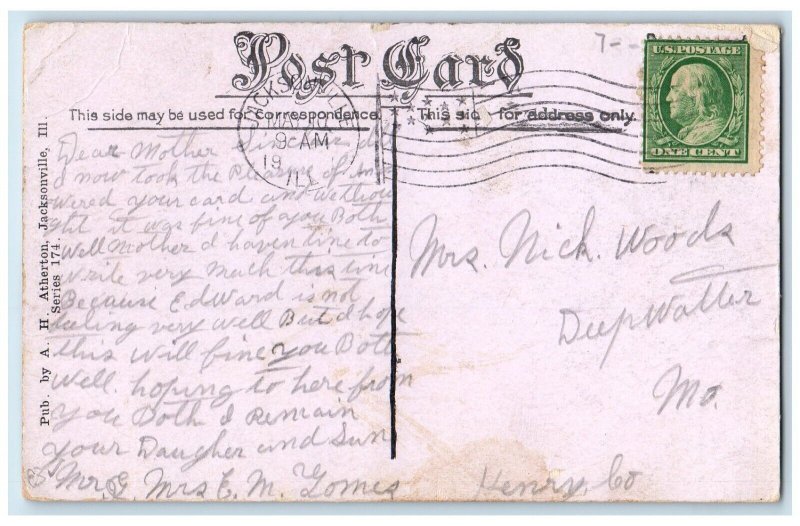 Post Card
This side may be used for correspondence.
This side for address only.
7--
U.S. POSTAGE
ONE CENT
JACKSONVILLE
MAR
9 AM
19
ILL
Pub. by A. H. Atherton, Jacksonville, Ill.
Series 174.
Dear Mother
I now took the Pleasure of ans
wered your card and we thou
ght it was fine of you Both
Well Mother I haven time to
write very much this time
Because Edward is not
feeling very well But I hope
this will fine you Both
well. hoping to here from
you Both I Remain
your Daugher and Sun
Mr & Mrs E. M. Gomes
Mrs. Nick. Woods
DeepWatter
Mo.
Henry, Co